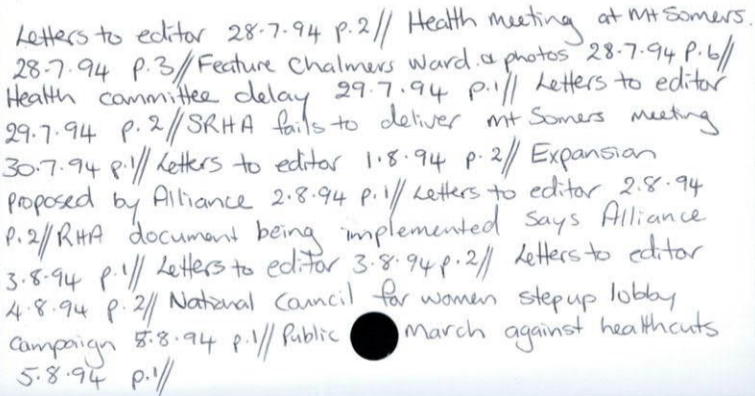 Letters to editor 28.7.94 p.2// Health meeting at Mt Somers.
28.7.94 p.3// Feature Chalmers Ward & photos 28.7.94 p.6//
Health committee delay 29.7.94 p.1// Letters to editor
29.7.94 p.2// SRHA fails to deliver Mt Somers meeting
30.7.94 p.1// Letters to editor 1.8.94 p.2// Expansion
proposed by Alliance 2.8.94 p.1// Letters to editor 2.8.94
p.2// RHA document being implemented says Alliance
3.8.94 p.1// Letters to editor 3.8.94 p.2// Letters to editor
4.8.94 p.2// National Council for women step up lobby
campaign 5.8.94 p.1// Public March against healthcuts
5.8.94 p.1//